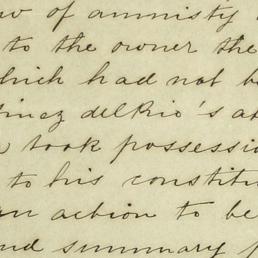 w of amnisty
to the owner the
which had not b
inez del Rio's a
took possessio
to his constitu
an action to be
nd summary